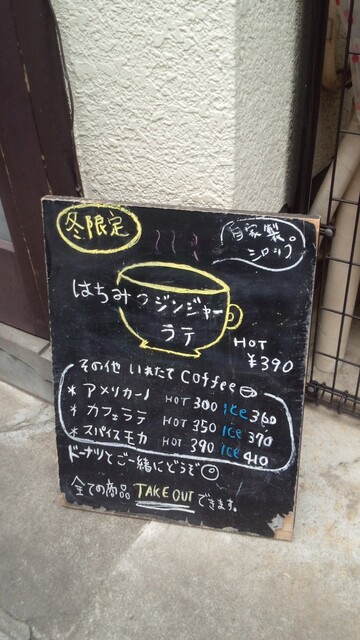 冬限定
自家製。
シロップ
はちみつジンジャー
ラテ
HOT
¥390
その他 いれたて Coffee
* アメリカーノ HOT 300 ICE 360
* カフェラテ HOT 350 ICE 370
* スパイスモカ HOT 390 ICE 410
ドーナツとご一緒にどうぞ
全ての商品 TAKE OUT できます。